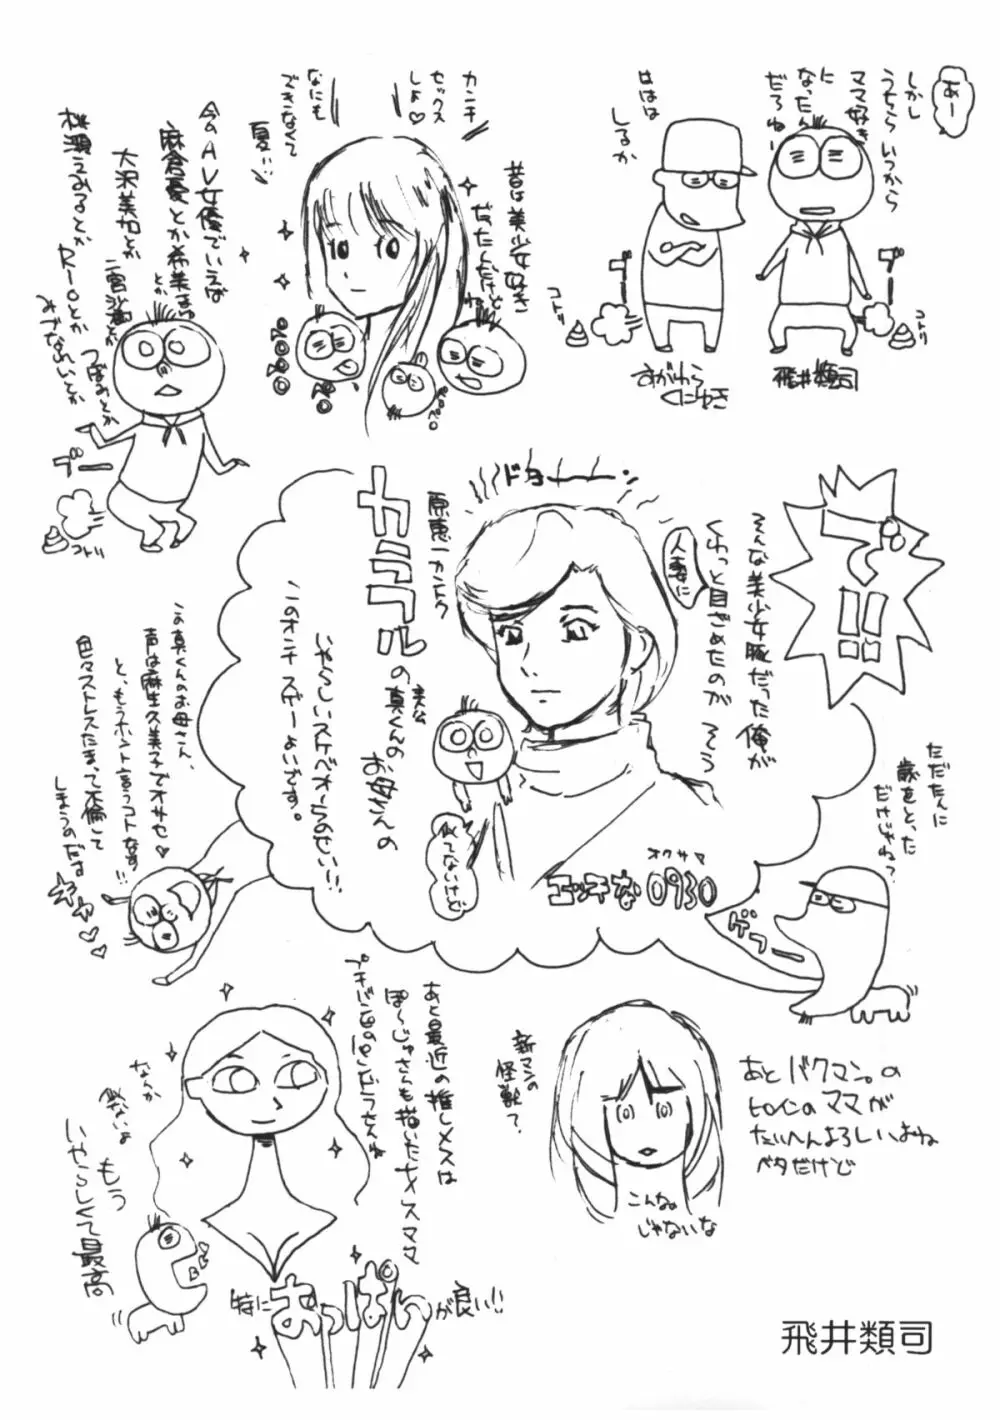 あー
しかし
うちらいつから
ママ好き
に
なったん
だろねー
ははは
しるか
ブー
コトリ
ブー
コトリ
すがわら
くにゆき
飛井類司
カンチ
セックス
しよ♡
なにも
できなくて
夏…
昔は美少女好き
だったんだけど
ね
ペロペロ
今のAV女優でいえば
麻倉憂とか希美まゆ
とか
大沢美加とか
二宮沙樹とか
つぼみとか
桃瀬えみるとか
Rioとか
みづなれいとか
ブー
コトリ
プ!!
そんな美少女豚だった俺が
くわっと目ざめたのがそう
人妻に
ドキューーン
原恵一カントク
カラフルの
主人公
真くんの
お母さんの
いやらしいスケベオーラのせい!!
このオンナスゲーよいです。
似てないけど
エッチな0930
オクサマ
この真くんのお母さん、
声は麻生久美子でオサセ♡
と、もうホント言うコトなす!!
色々ストレスたまって不倫して
しまうのだす
ただたんに
歳をとった
だけじゃね?
ゲフー
あと最近の推しメスは
ぽ～じゅさんも描いたナメスママ
プチバン色のパンドラさんね
なんか
似ないよ
もう
いやらしくて最高
特におっぱいが良い!!
新マンの
怪獣?
こんな。
じゃないな
あとバクマン。の
ヒロインのママが
たいへんよろしいよね
ベタだけど
飛井類司